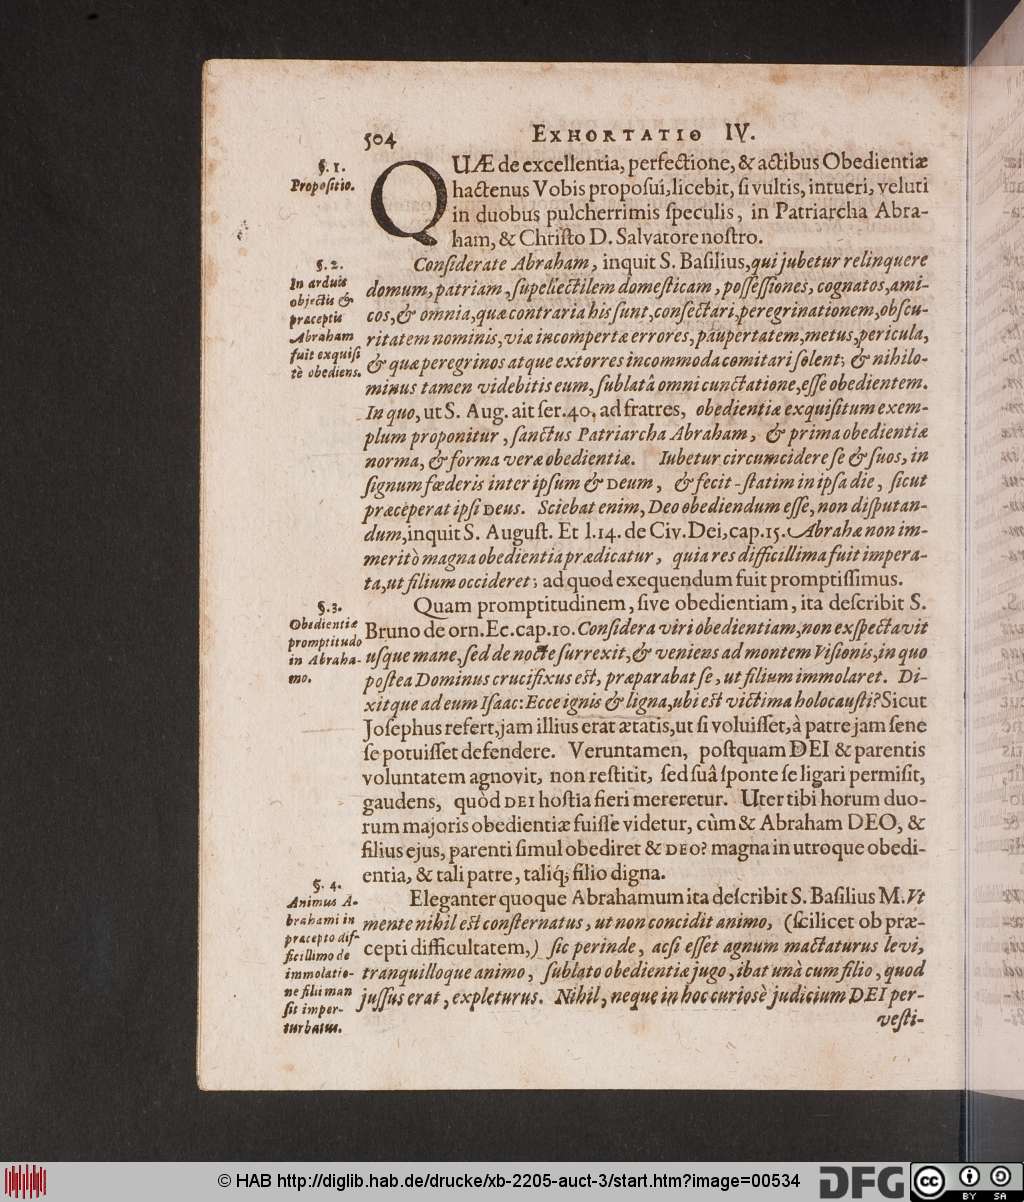 504 EXHORTATIO IV.
§. 1.
Propositio.
QUÆ de excellentia, perfectione, & actibus Obedientiæ
hactenus Vobis proposui, licebit, si vultis, intueri, veluti
in duobus pulcherrimis speculis, in Patriarcha Abra-
ham, & Christo D. Salvatore nostro.
§. 2.
In arduis
objectis &
præceptis
Abraham
fuit exquisi
tè obediens.
Considerate Abraham, inquit S. Basilius, qui jubetur relinquere
domum, patriam, supellectilem domesticam, possessiones, cognatos, ami-
cos, & omnia, quæ contraria his sunt, consectari, peregrinationem, obscu-
ritatem nominis, viæ incompertæ errores, paupertatem, metus, pericula,
& quæ peregrinos atque extorres incommoda comitari solent; & nihilo-
minus tamen videbitis eum, sublatâ omni cunctatione, esse obedientem.
In quo, ut S. Aug. ait ser. 40. ad fratres, obedientiæ exquisitum exem-
plum proponitur, sanctus Patriarcha Abraham, & prima obedientiæ
norma, & forma veræ obedientiæ. Iubetur circumcidere se & suos, in
signum fœderis inter ipsum & DEUM, & fecit statim in ipsa die, sicut
præceperat ipsi DEUS. Sciebat enim, Deo obediendum esse, non disputan-
dum, inquit S. August. Et l. 14. de Civ. Dei, cap. 15. Abrahæ non im-
meritò magna obedientia prædicatur, quia res difficillima fuit impera-
ta, ut filium occideret; ad quod exequendum fuit promptissimus.
§. 3.
Obedientiæ
promptitudo
in Abraha-
mo.
Quam promptitudinem, sive obedientiam, ita describit S.
Bruno de orn. Ec. cap. 10. Considera viri obedientiam, non exspectavit
usque mane, sed de nocte surrexit, & veniens ad montem Visionis, in quo
postea Dominus crucifixus est, præparabat se, ut filium immolaret. Di-
xitque ad eum Isaac: Ecce ignis & ligna, ubi est victima holocausti? Sicut
Josephus refert, jam illius erat ætatis, ut si voluisset, à patre jam sene
se potuisset defendere. Veruntamen, postquam DEI & parentis
voluntatem agnovit, non restitit, sed suâ sponte se ligari permisit,
gaudens, quòd DEI hostia fieri mereretur. Uter tibi horum duo-
rum majoris obedientiæ fuisse videtur, cùm & Abraham DEO, &
filius ejus, parenti simul obediret & DEO? magna in utroque obedi-
entia, & tali patre, taliq; filio digna.
§. 4.
Animus A-
brahami in
præcepto dif-
ficillimo de
immolatio-
ne filii man
sit imper-
turbatus.
Eleganter quoque Abrahamum ita describit S. Basilius M. Vt
mente nihil est consternatus, ut non concidit animo, (scilicet ob præ-
cepti difficultatem,) sic perinde, acsi esset agnum mactaturus levi,
tranquilloque animo, sublato obedientiæ jugo, ibat unà cum filio, quod
jussus erat, expleturus. Nihil, neque in hoc curiosè judicium DEI per-
vesti-
© HAB http://diglib.hab.de/drucke/xb-2205-auct-3/start.htm?image=00534
DFG
cc BY SA